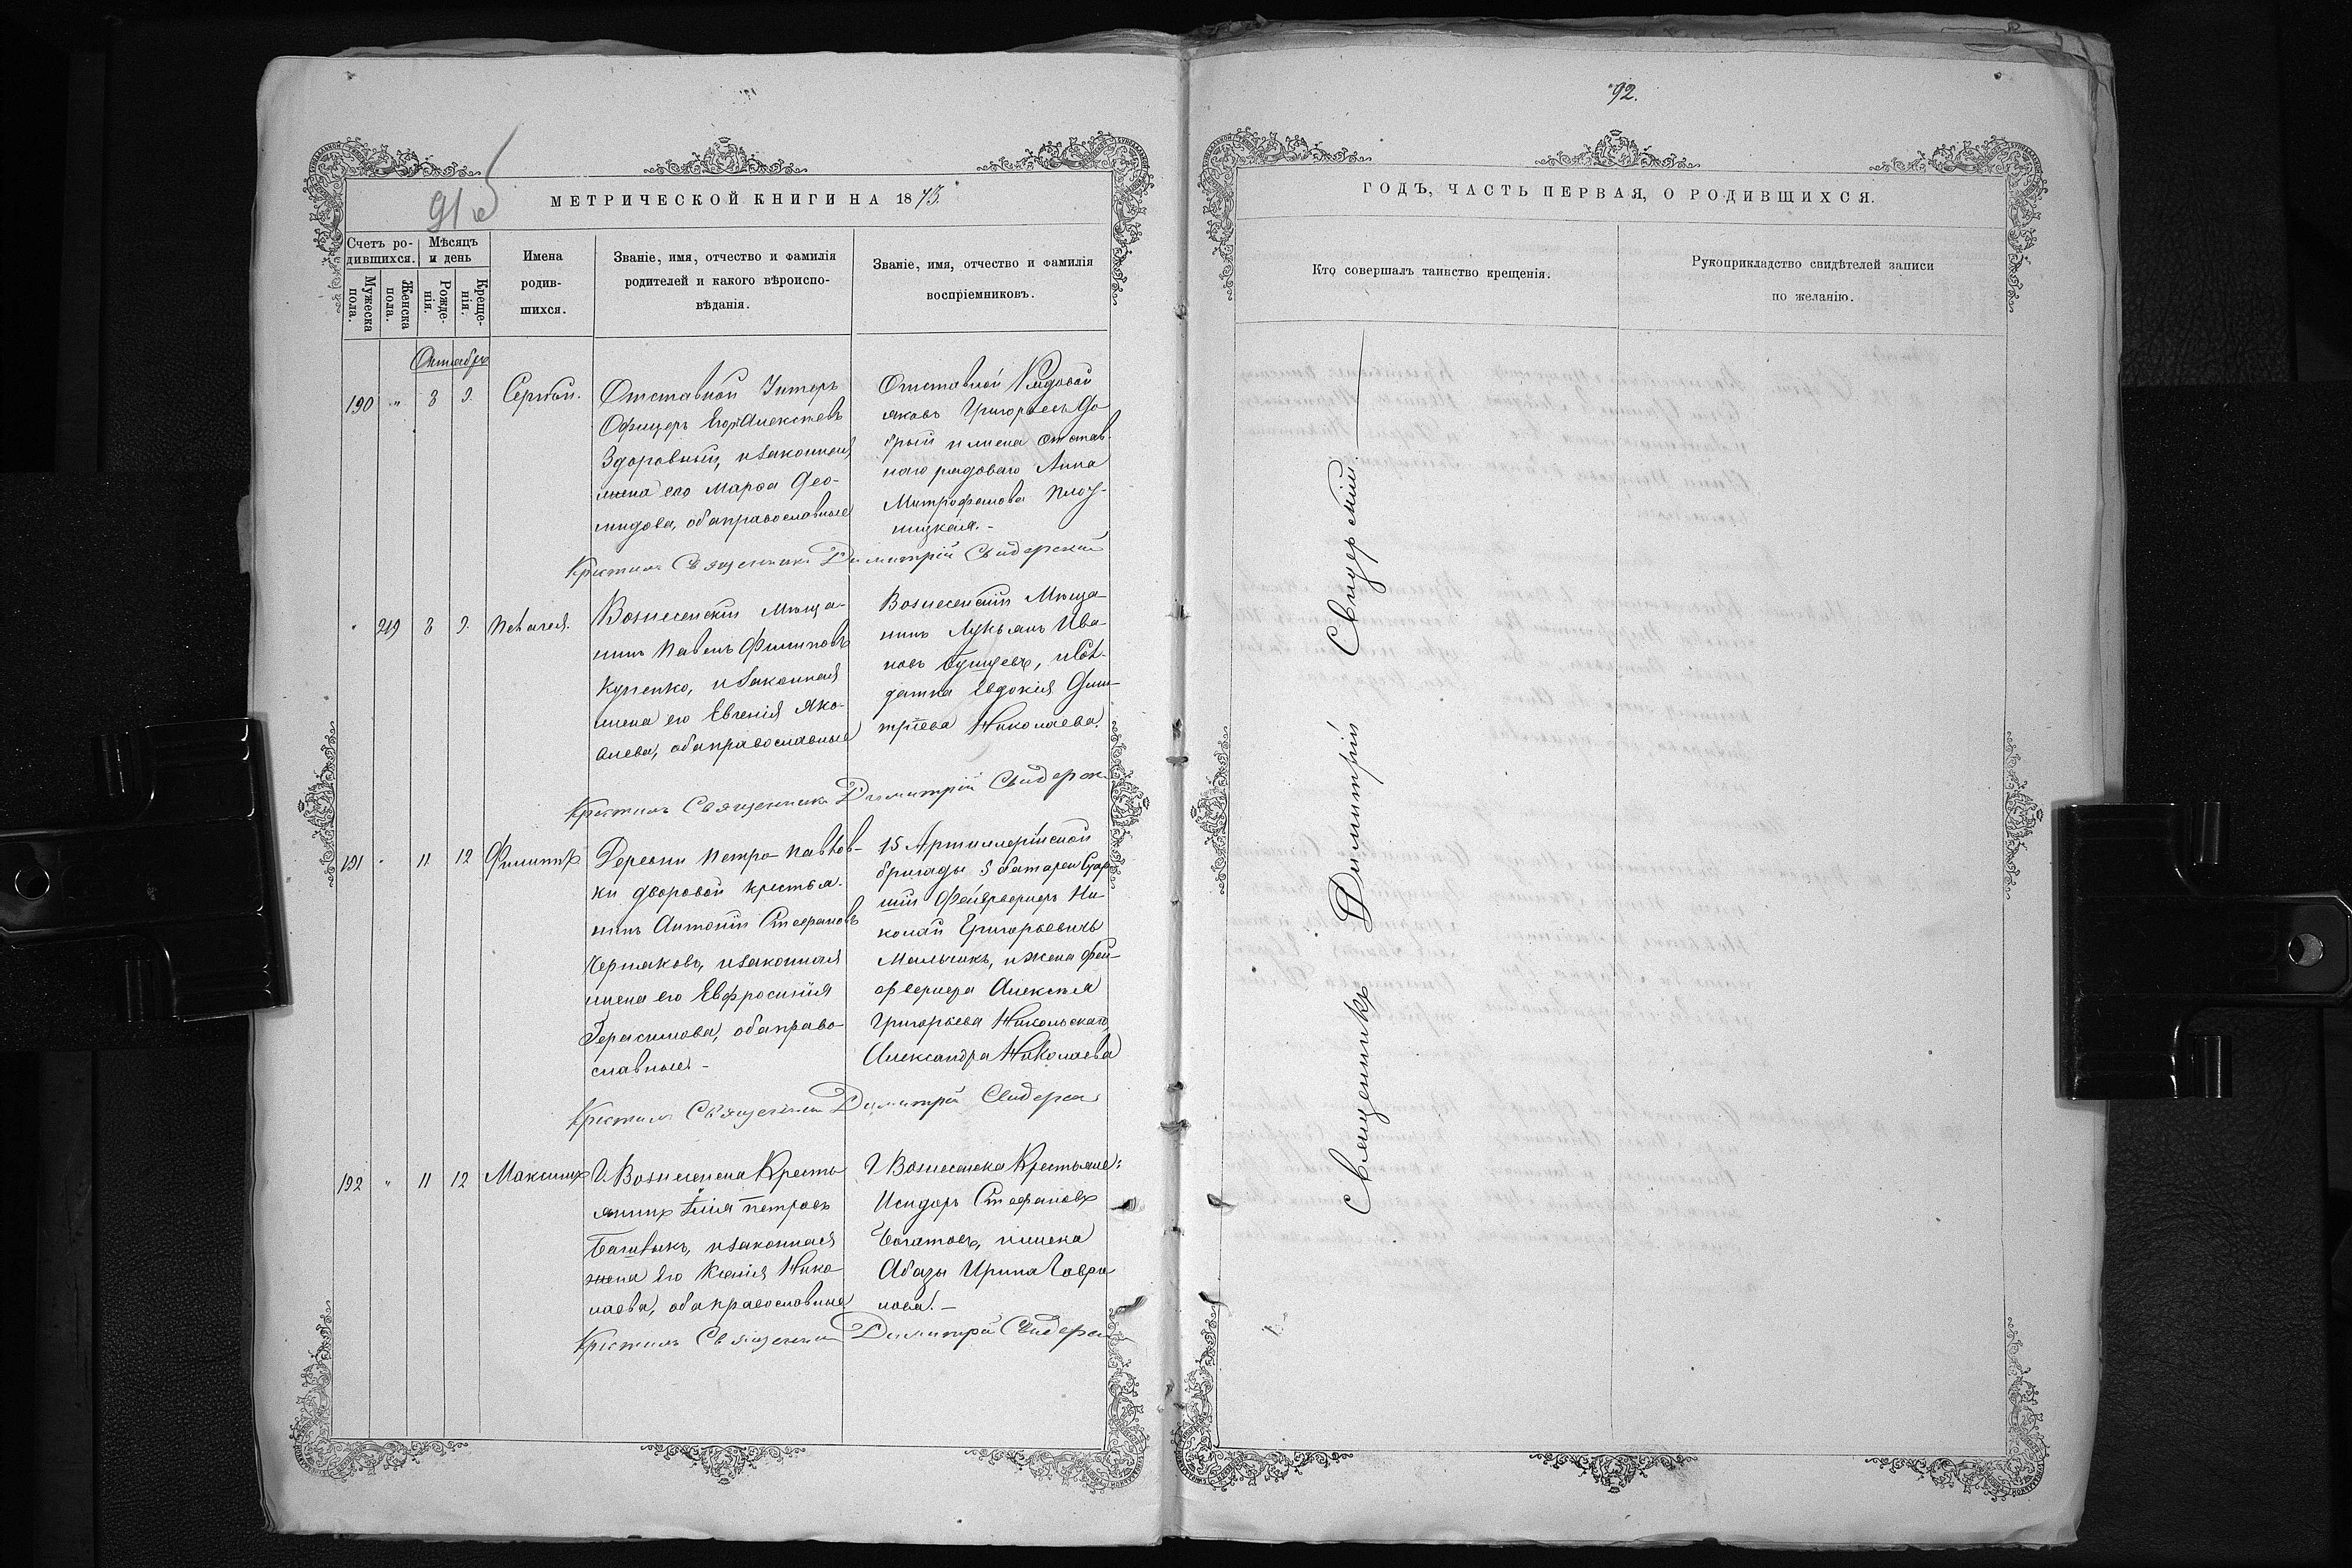 91
МЕТРИЧЕСКОЙ КНИГИ НА 1873.
Счетъ ро-
дившихся.
Мѣсяцъ
и день
Мужеска
пола.
Женска
пола.
Рожде-
нія.
Креще-
нія.
Имена
родив-
шихся.
Званіе, имя, отчество и фамилія
родителей и какого вѣроиспо-
вѣданія.
Званіе, имя, отчество и фамилія
воспріемниковъ.
Октябрь
190 " 8 9. Сергѣй.
Отставной Унтеръ
Офицеръ Егоръ Алексѣевъ
Здоровный, и законная
жена его Марѳа Део-
мидова, оба православные
Отставной Рядовой
Яковъ Григорьевъ До
брый и жена отстав-
наго рядоваго Анна
Митрофанова
ницкая. -
Крестилъ Священникъ Димитрій Свидерскій
" 219 8 9. Пелагея.
Вознесенскій Мѣща-
нинъ Павелъ Филиповъ
Куценко, и законная
жена его Евгенія Яко-
влева, оба православные
Вознесенскій Мѣща-
нинъ Лукьянъ Ива-
новъ и Сол-
датка Евдокія Дми-
тріева Николаева.
Крестилъ Священникъ Димитрій Свидерск
191 " 11 12 Филиппъ
Деревни Петро-Павлов-
ки дворовой крестья-
нинъ Антоній Стефановъ
Черняковъ, и законная
жена его Евфросинія
Герасимова, оба право-
славные. -
15 Артиллерійской
бригады 5 батареи Стар
шій Фейерверкеръ Ни-
колай Григорьевичъ
Мальчикъ, и жена фей-
ерверкера Алексѣя
Григорьева Никольскаго
Александра Николаева
Крестилъ Священникъ Димитрій Свидерск
192 " 11 12 Максимъ
Г. Вознесенска Кресть
янинъ Илія Петровъ
и законная
жена его Ксенія Нико-
лаева, оба православные
Г. Вознесенска Крестьяне:
Исидоръ Стефановъ
Богатовъ, и жена
Абазы Ирина Гаври
лова. -
Крестилъ Священникъ Димитрій Свидерск
92.
ГОДЪ, ЧАСТЬ ПЕРВАЯ, О РОДИВШИХСЯ.
Кто совершалъ таинство крещенія.
Рукоприкладство свидѣтелей записи
по желанію.
Священникъ Димитрій Свидерскій